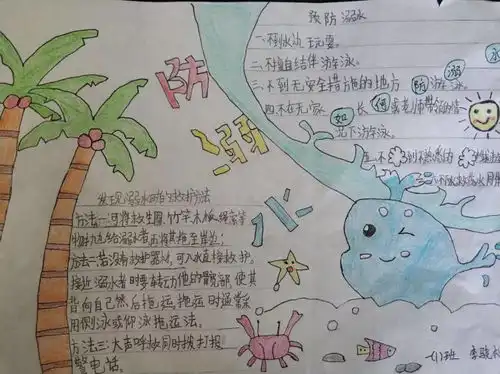 预防溺水
一.不到水坑玩耍。
二.不擅自结伴游泳。
三.不到无安全措施的地方游泳。
四.不在无家长或老师带领的情
况下游泳。
五.不到不熟悉的
防
溺
水
如
何
防
溺
发现溺水时的救护方法
方法一:可将救生圈、竹竿、木板、绳索等
物抛给溺水者,再将其拖至岸边;
方法二:若没有救护器材,可入水直接救护。
接近溺水者时要转动他的髋部,使其
背向自己然后拖运。拖运时通常采
用侧泳或仰泳拖运法。
方法三:大声呼救同时拨打报
警电话。
(1)班 李骏